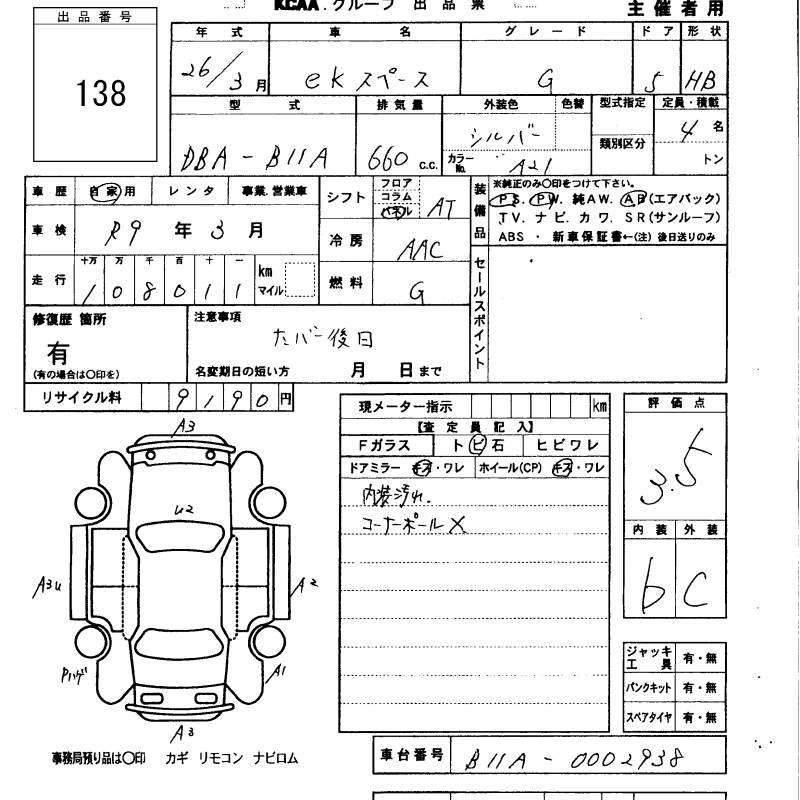 KCAA.グループ 出品票
主催者用
出品番号
138
年式 車名 グレード ドア 形状
26/3月 ekスペース G 5 HB
型式 排気量 外装色 色替 型式指定 定員・積載
DBA-B11A 660 c.c. シルバー カラーNo. A21 類別区分 4名 トン
車歴 自家用 レンタ 事業.営業車
車検 R9年3月
走行 十万 万 千 百 十 一 km マイル
1 0 8 0 1 1
シフト フロア コラム パネル AT
冷房 AAC
燃料 G
装備品 ※純正のみ〇印をつけて下さい。
PS. PW. 純AW. AB(エアバック)
TV. ナビ. カワ. SR(サンルーフ)
ABS ・ 新車保証書←(注) 後日送りのみ
セールスポイント
修復歴 箇所
有
(有の場合は〇印を)
注意事項
ナバー後日
名変期日の短い方 月 日まで
リサイクル料 9190円
現メーター指示 km
【査定員記入】
Fガラス トビ石 ヒビワレ
ドアミラー キズ・ワレ ホイール(CP) キズ・ワレ
内装汚れ.
コーナーポール X
評価点
3.5
内装 外装
b C
ジャッキ工具 有・無
パンクキット 有・無
スペアタイヤ 有・無
A3
U2
A3U
A2
Pハゲ
A1
A3
事務局預り品は〇印 カギ リモコン ナビロム
車台番号 B11A-0002938